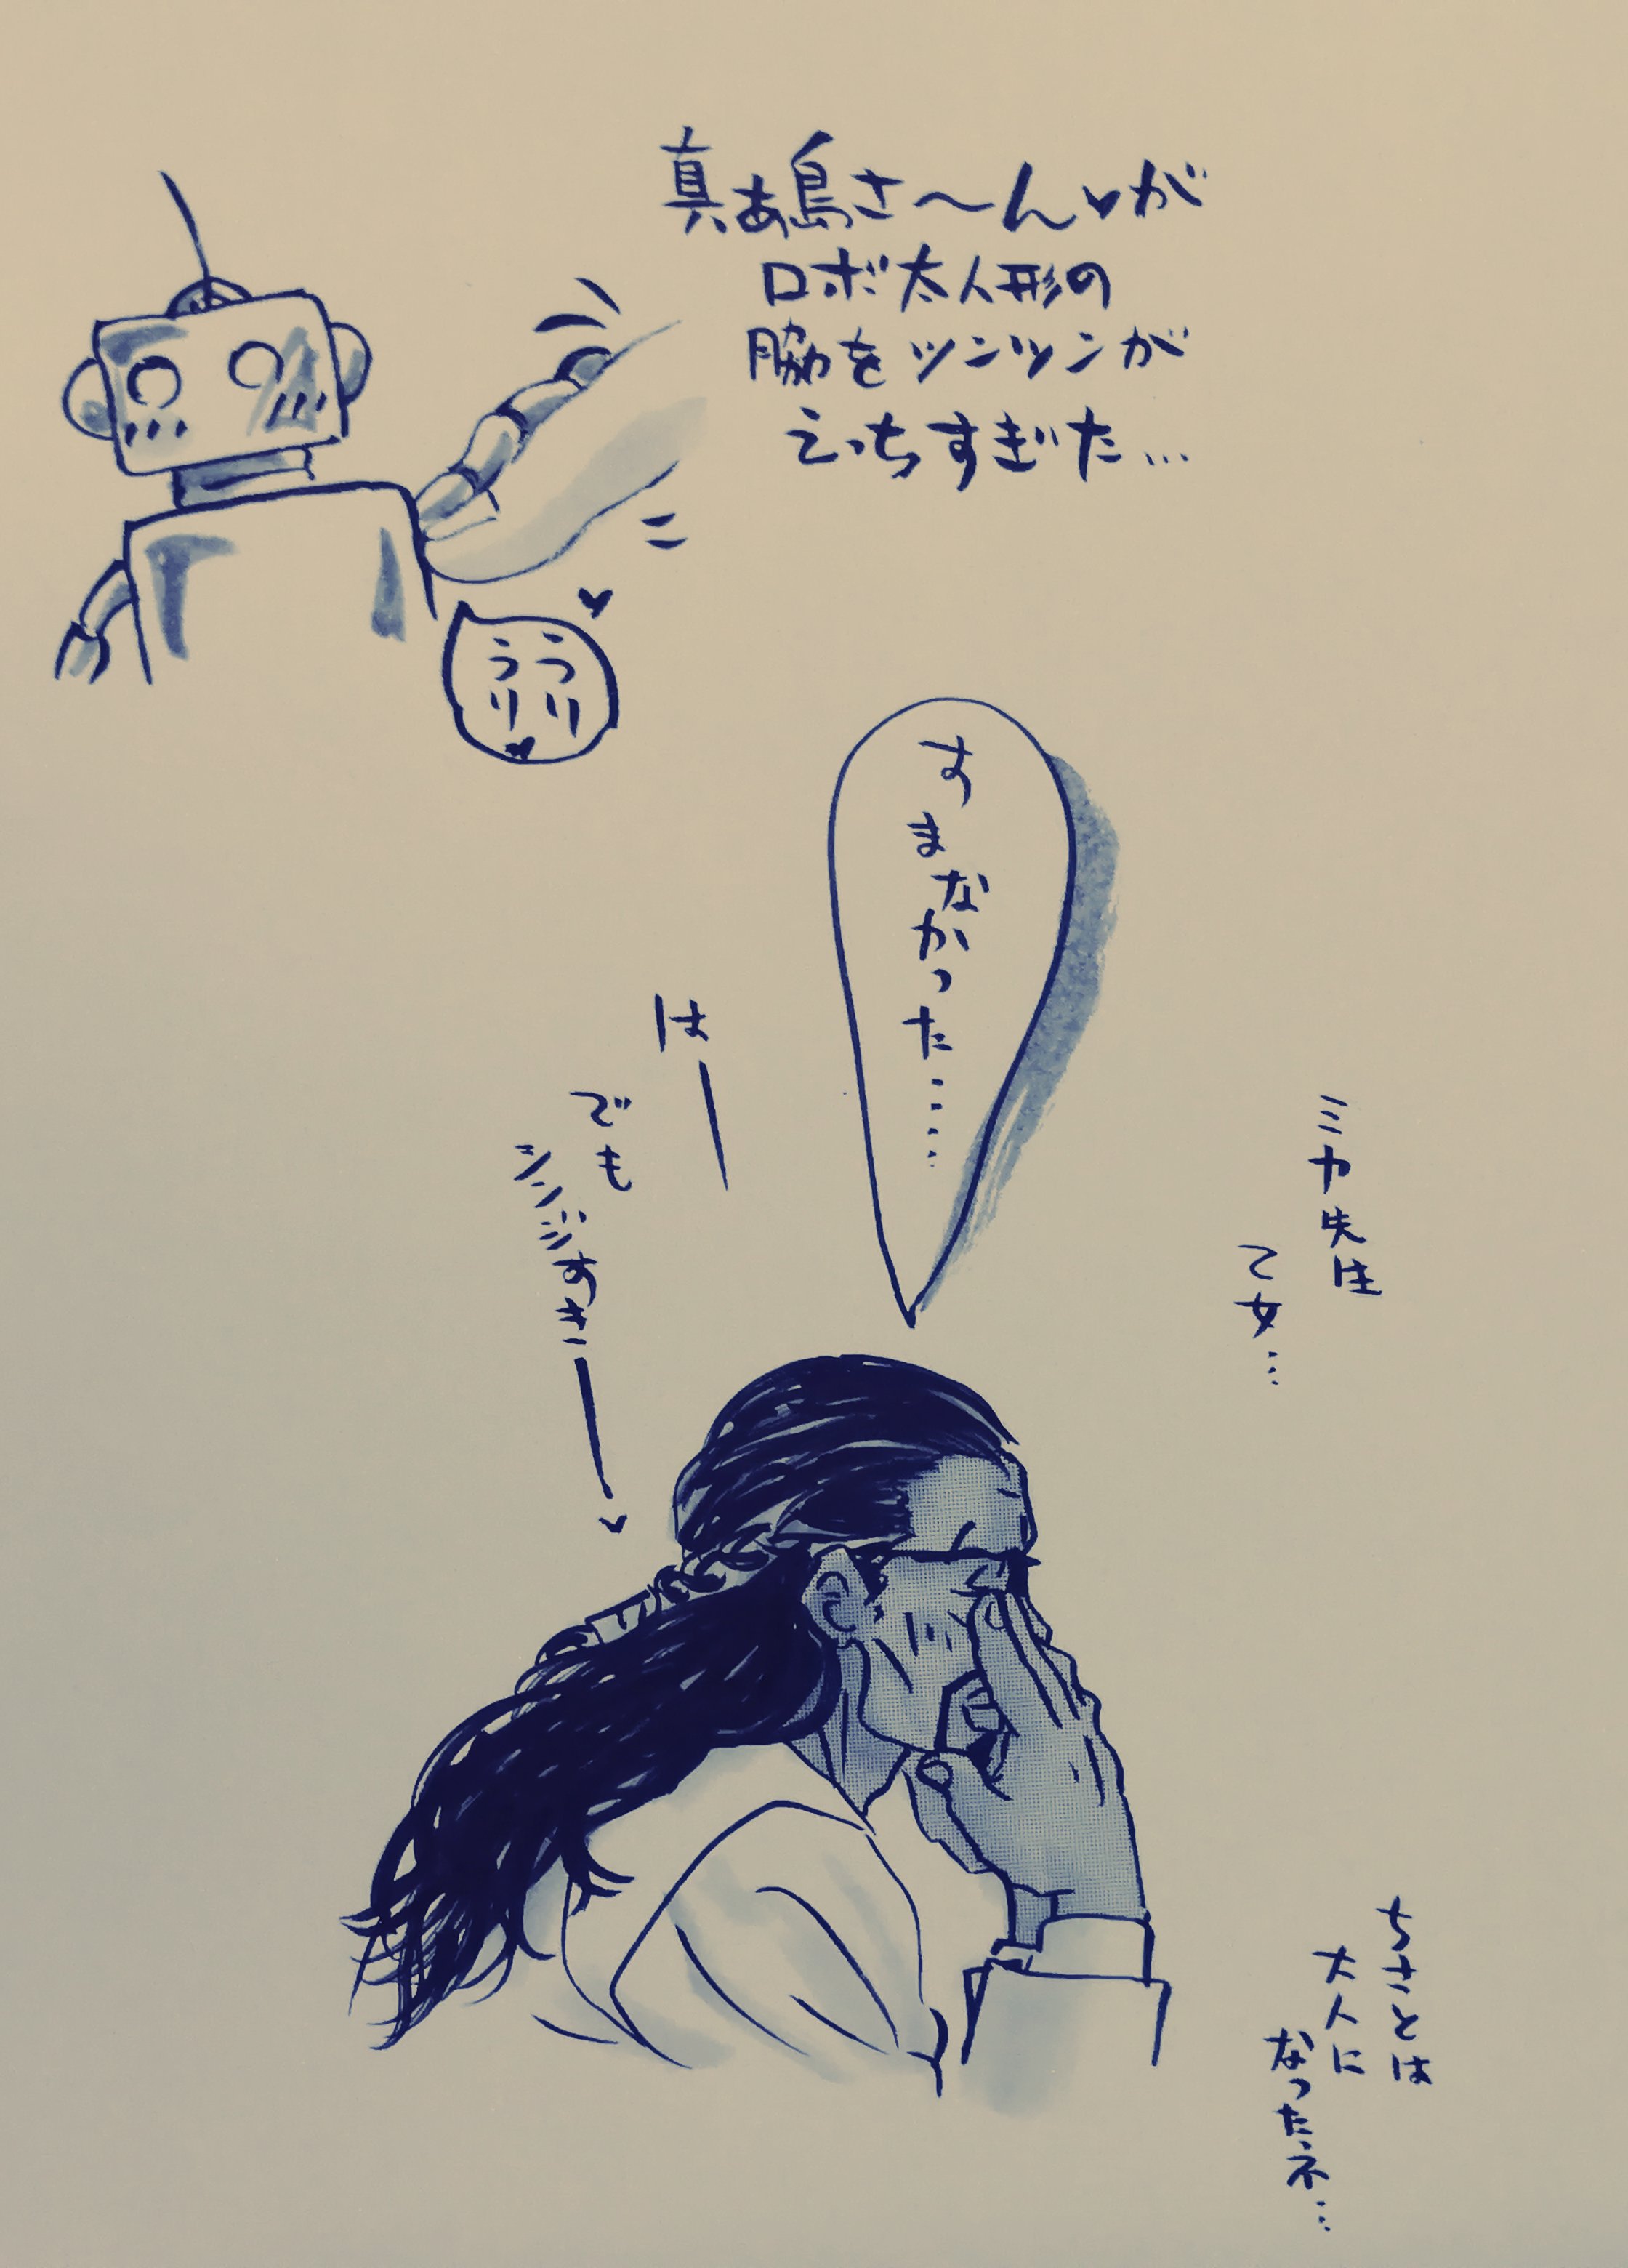 真あ島さ〜ん♥が
ロボ太人形の
脇をツンツンが
えっちすぎた…
うり
うり♥
すまなかった……
はー
でも
すきー♥
ミカ先生
乙女…
ちさとは
大人に
なったネ…